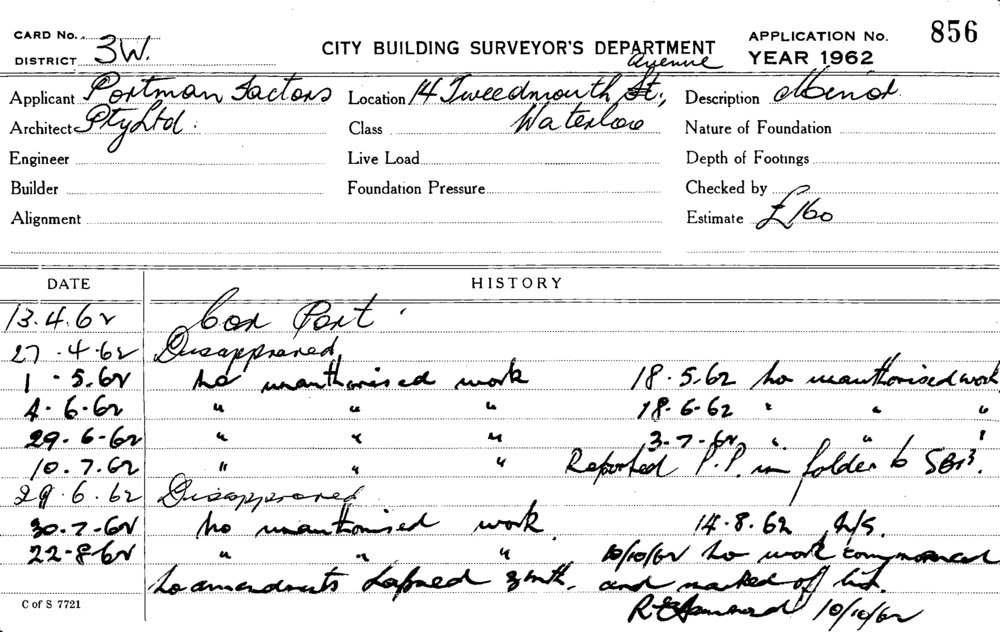 CARD No. CITY BUILDING SURVEYOR'S DEPARTMENT APPLICATION No. 856
DISTRICT 3W. YEAR 1962
Avenue
Applicant Portman Factors Location 14 Tweedmouth St., Description Minor.
Architect Pty Ltd. Class Waterloo Nature of Foundation
Engineer Live Load Depth of Footings
Builder Foundation Pressure Checked by
Alignment Estimate £160
DATE HISTORY
13.4.62 Car Port.
27.4.62 Disapproved
1.5.62 No unauthorised work 18.5.62 No unauthorised work
4.6.62 " " " 18.6.62 " " "
29.6.62 " " " 3.7.62 " " "
10.7.62 " " " Reported P.P. in folder to
29.6.62 Disapproved
30.7.62 No unauthorised work. 14.8.62
22.8.62 " " " 10/10/62 No work commenced
No amendments Lapsed and marked off list.
10/10/62
C of S 7721